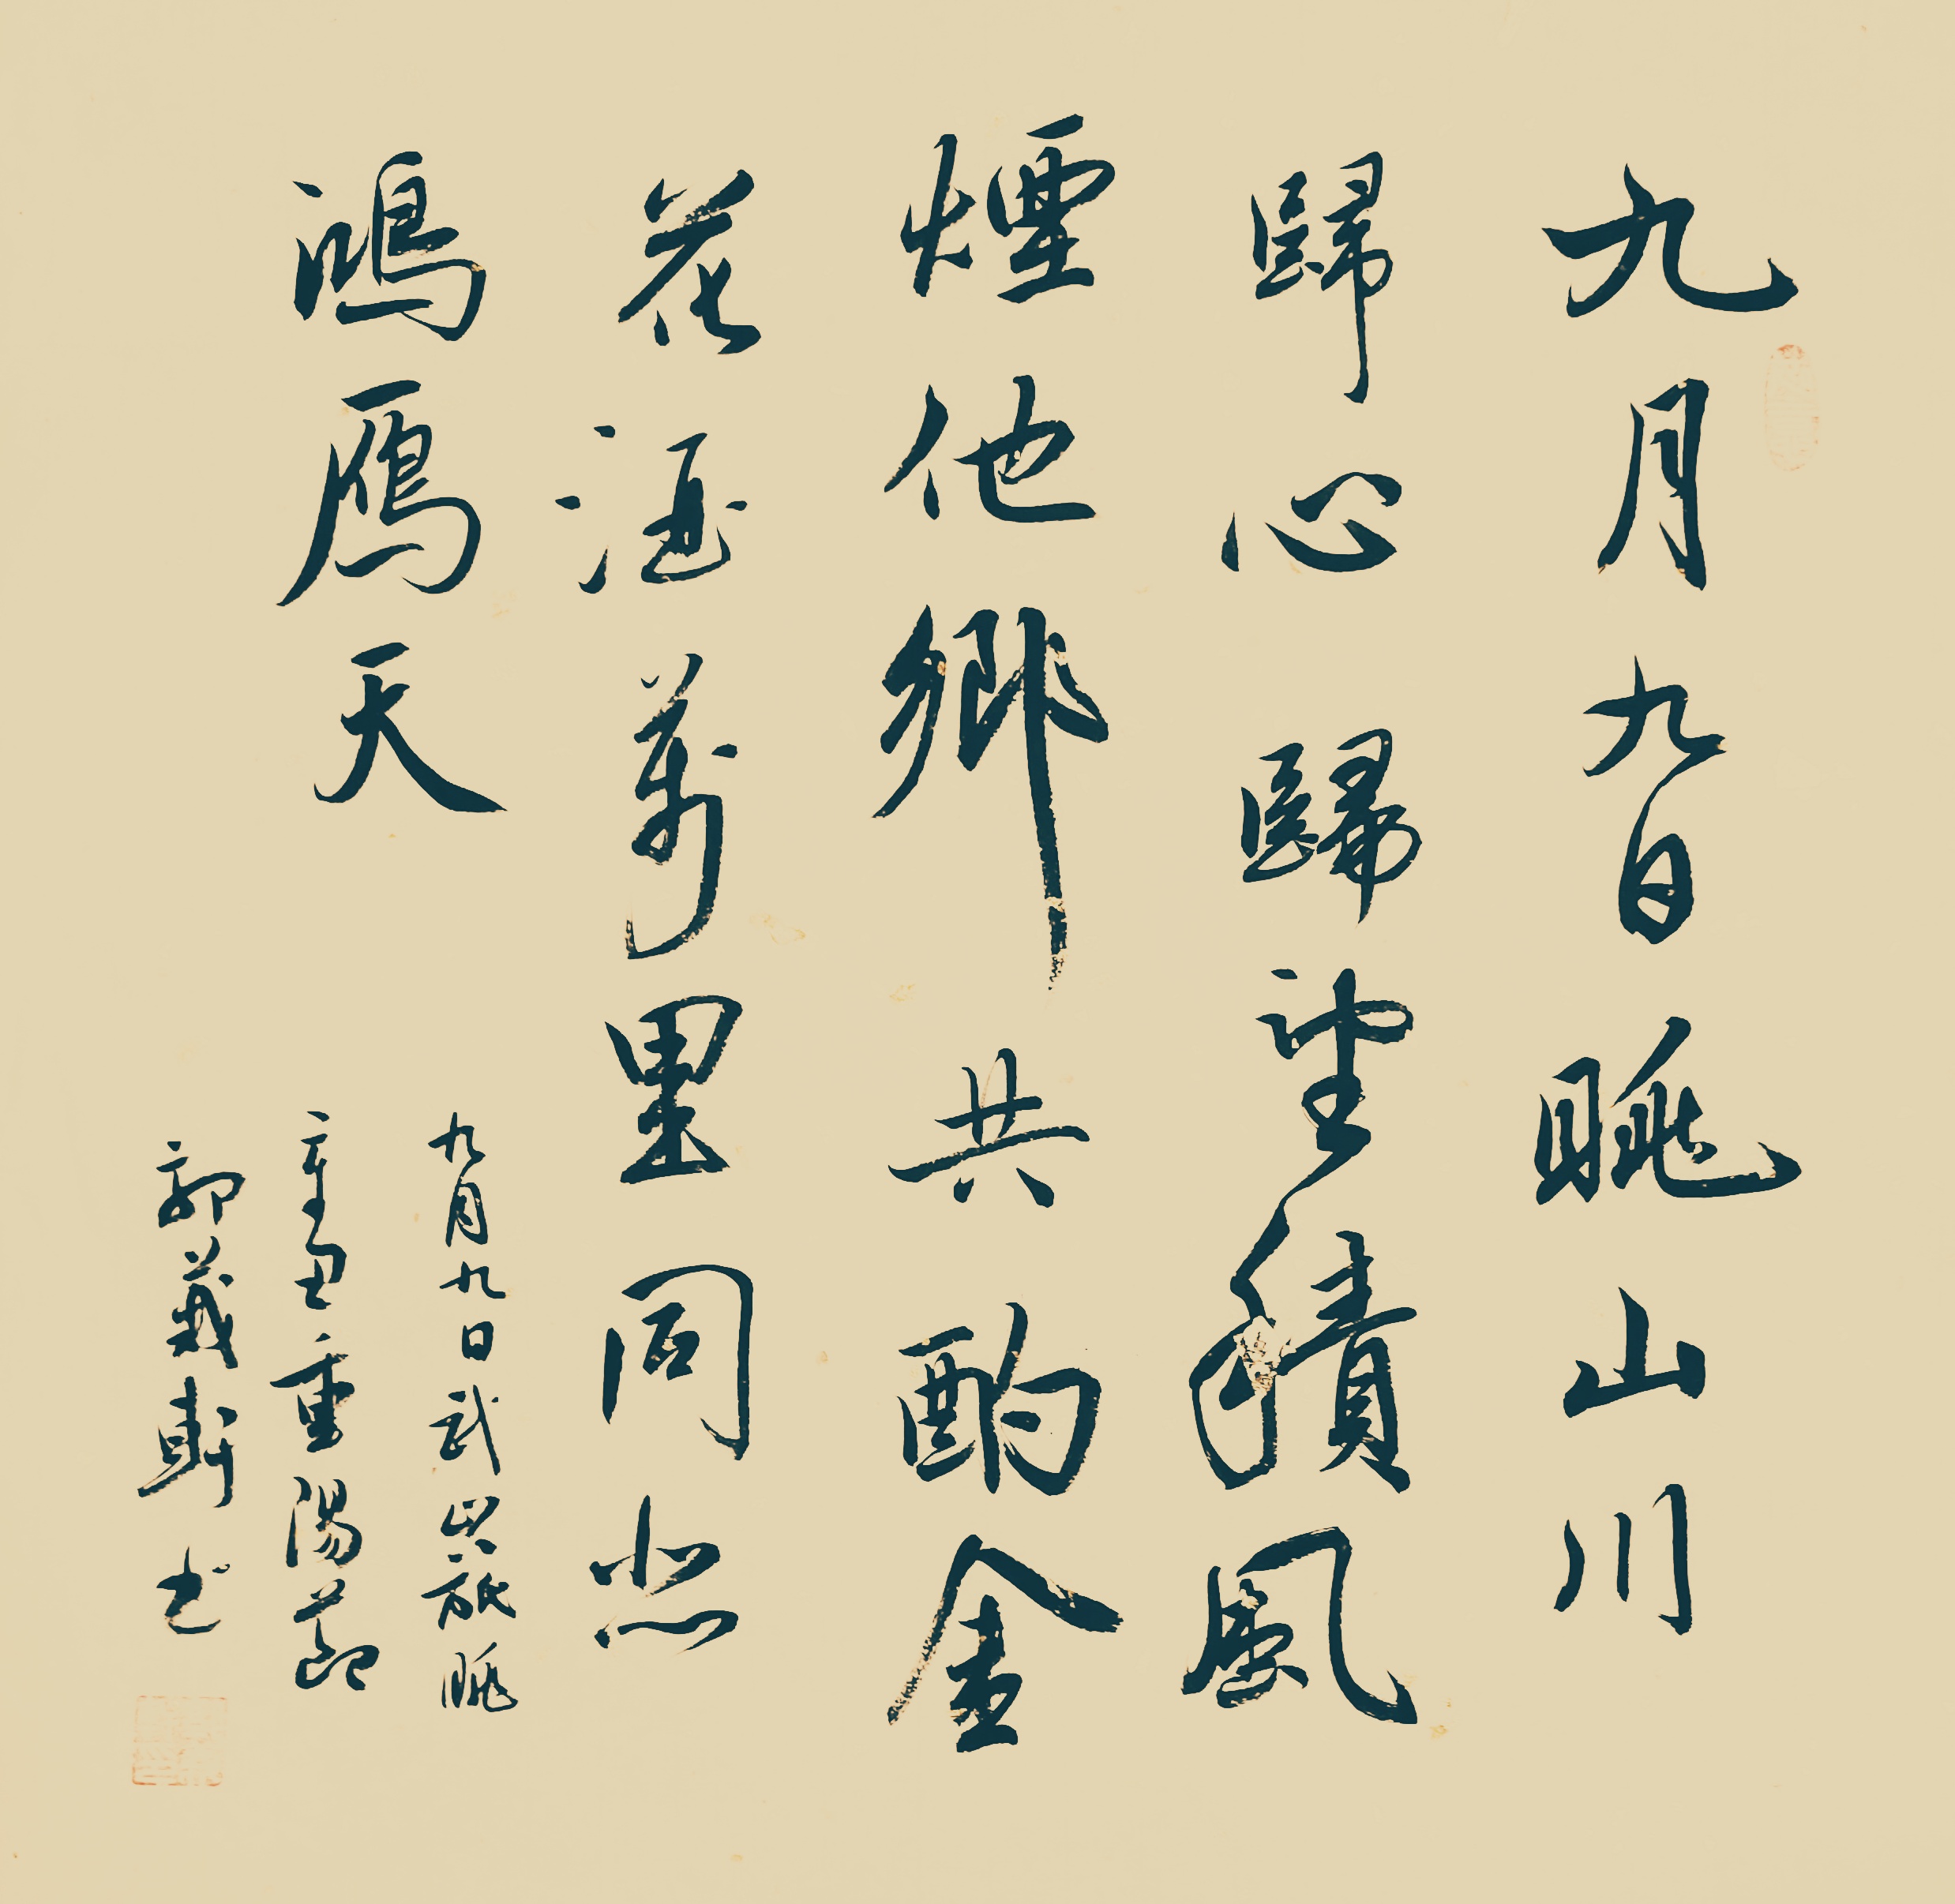 九月九日眺山川
歸心歸望積風
煙他鄉共酌金
花酒萬里同悲
鴻鴈天
九月九日武旅眺
辛丑重陽節
郭義軒書